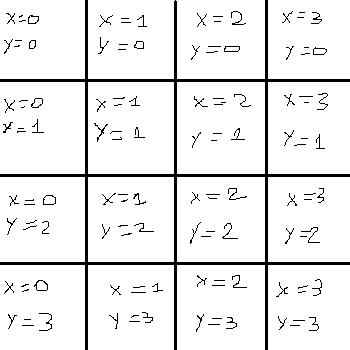 x=0
y=0
x=1
y=0
x=2
y=0
x=3
y=0
x=0
x=1
x=1
y=1
x=2
y=1
x=3
y=1
x=0
y=2
x=1
y=2
x=2
y=2
x=3
y=2
x=0
y=3
x=1
y=3
x=2
y=3
x=3
y=3